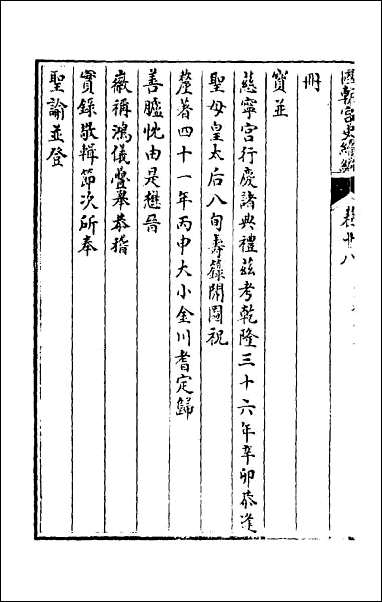 國朝宮史續編 卷廿八
冊
寶並
慈寧宮行慶諸典禮茲考乾隆三十六年辛卯恭逢
聖母皇太后八旬壽籙開闓祝
釐暮四十一年丙申大小金川耆定歸
善臚忱由是懋晉
徽稱鴻儀疊舉恭指
實錄敬輯節次所奉
聖諭並登